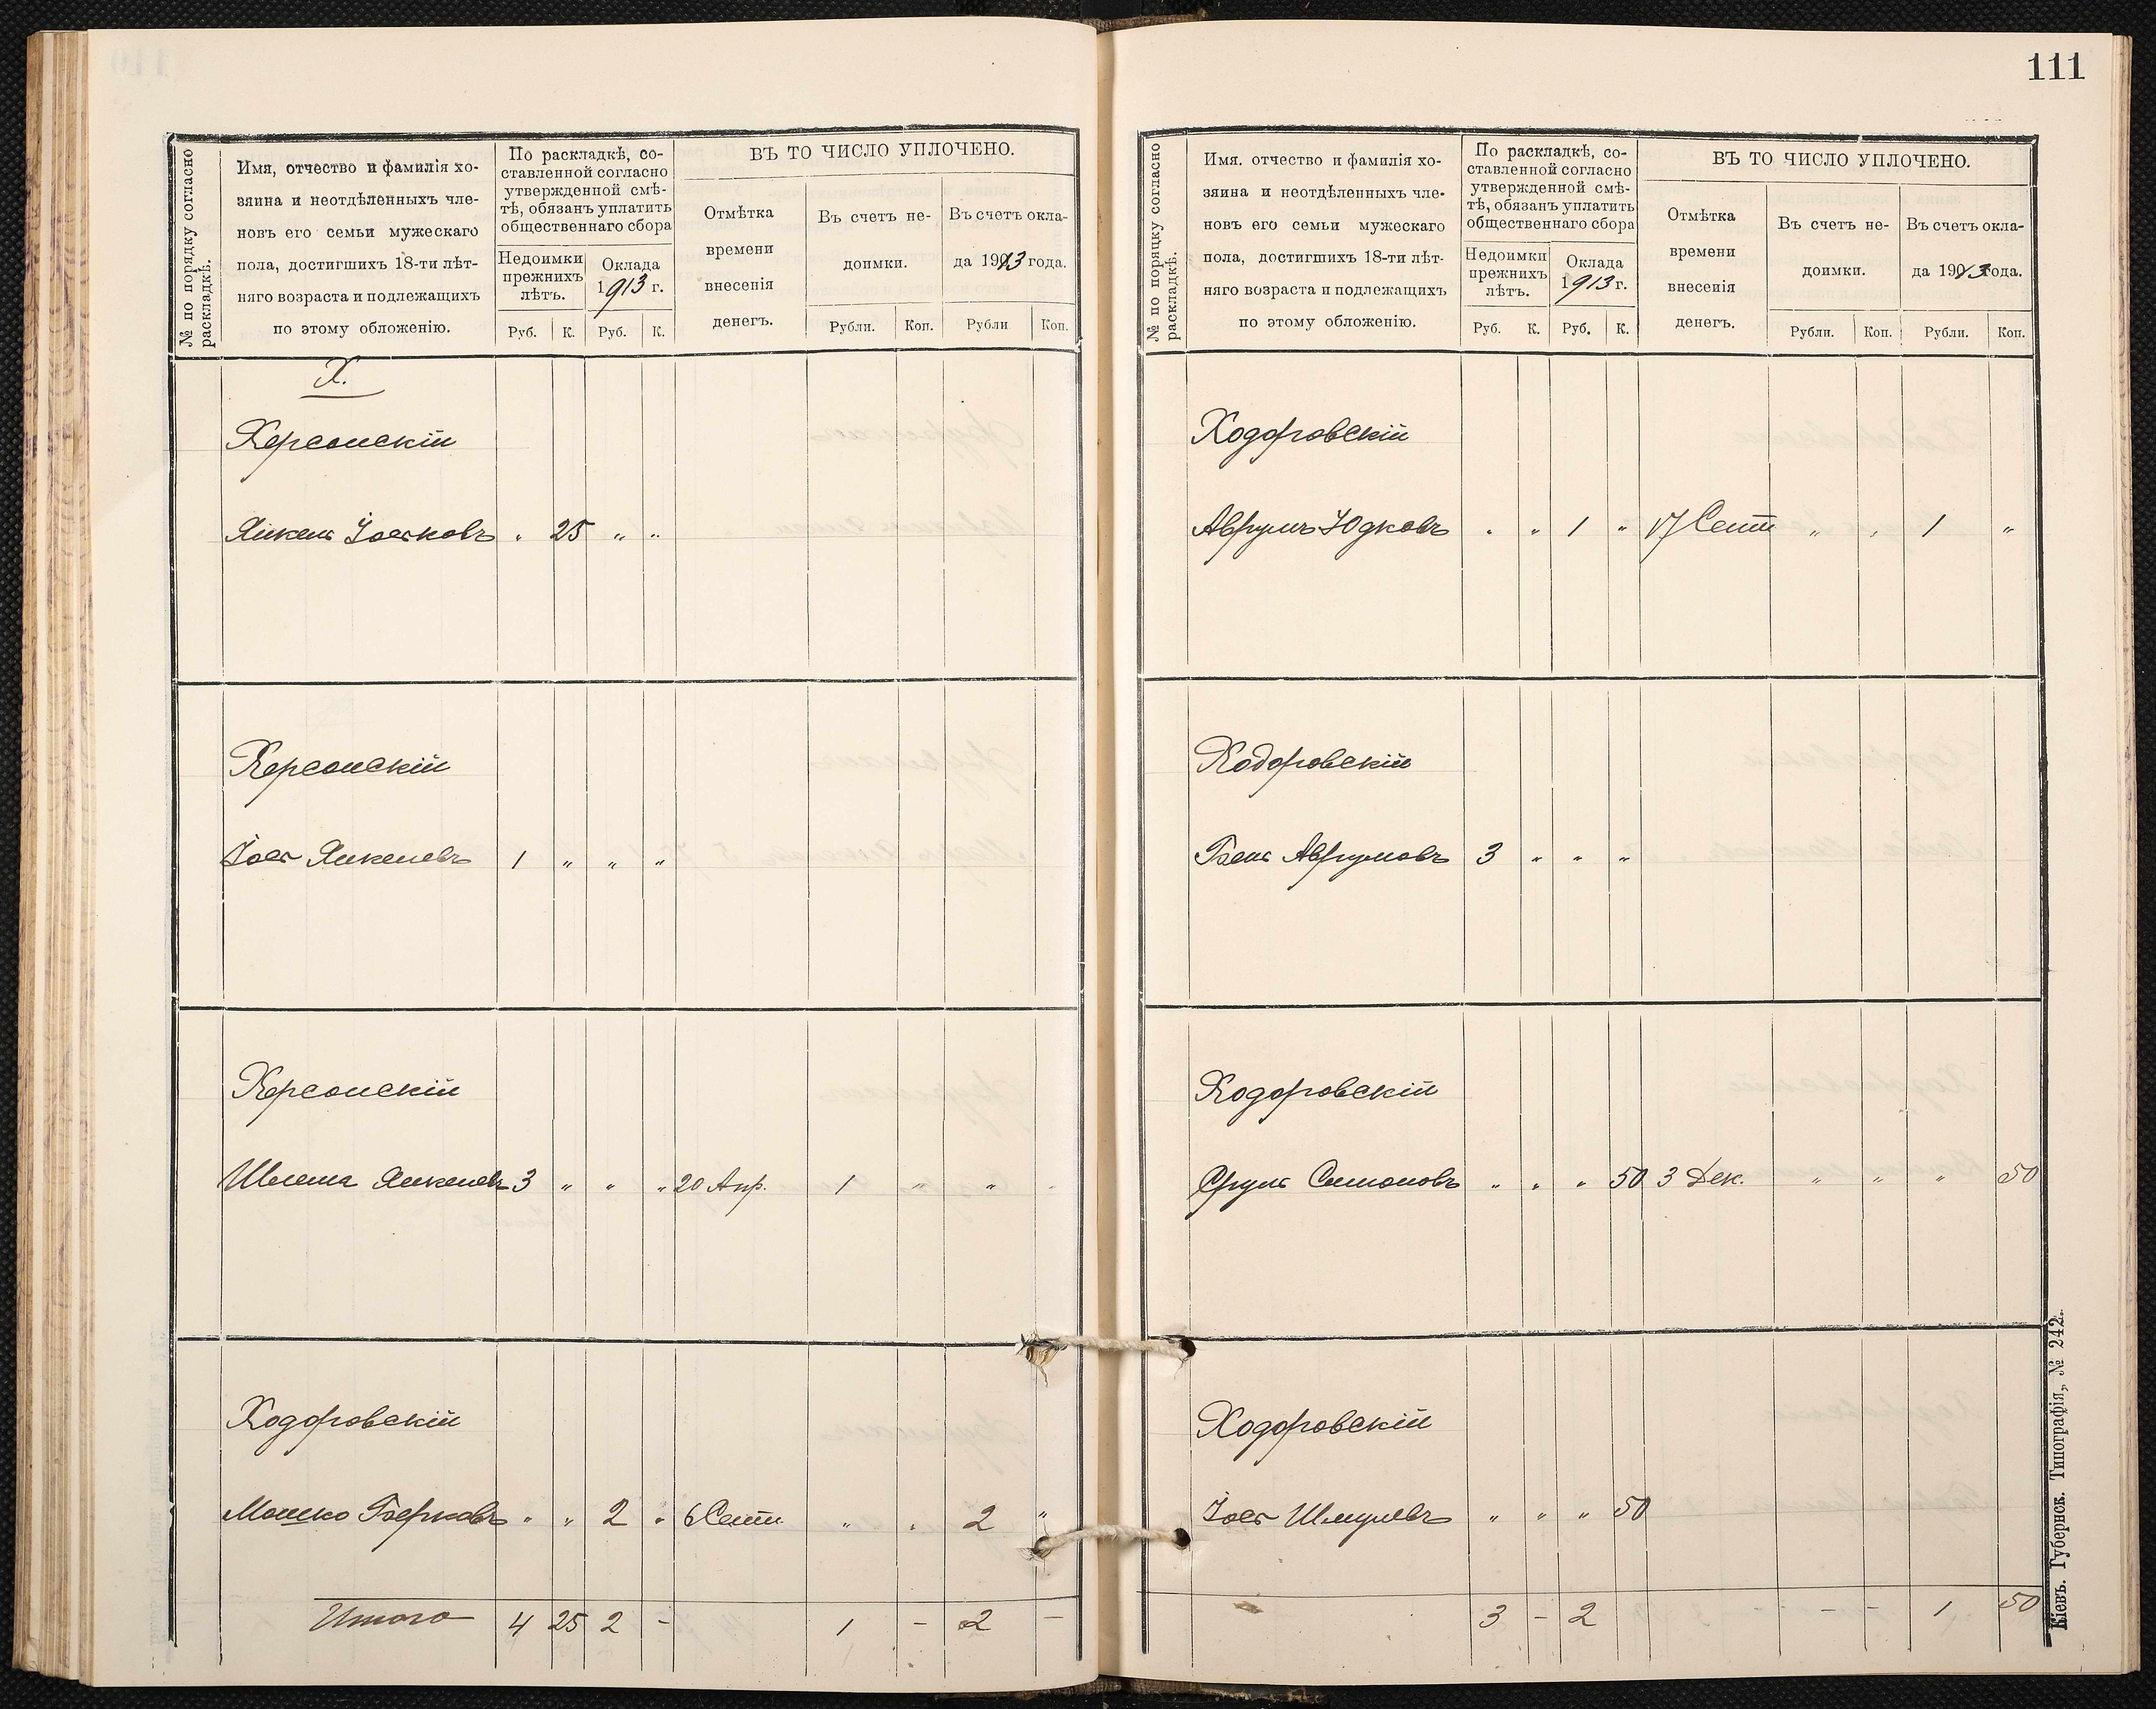 111
№ по порядку согласно раскладкѣ.
Имя, отчество и фамилія хо-
зяина и неотдѣленныхъ чле-
новъ его семьи мужескаго
пола, достигшихъ 18-ти лѣт-
няго возраста и подлежащихъ
по этому обложенію.
По раскладкѣ, со-
ставленной согласно
утвержденной смѣ-
тѣ, обязанъ уплатить
общественнаго сбора
Недоимки
прежнихъ
лѣтъ.
Оклада
1913 г.
Руб. К. Руб. К.
ВЪ ТО ЧИСЛО УПЛОЧЕНО.
Отмѣтка
времени
внесенія
денегъ.
Въ счетъ не-
доимки.
Въ счетъ окла-
да 1913 года.
Рубли. Коп. Рубли Коп.
Х.
Херсонскій
Янкель Іоськовъ „ 25 „ „
Херсонскій
Іось Янкелевъ 1 „ „ „
Херсонскій
Шлема Янкелевъ 3 „ „ „ 20 Апр. 1 „ „ „
Ходоровскій
Мошко Берковъ „ „ 2 „ 6 Сент. „ „ 2 „
Итого 4 25 2 - 1 - 2 -
№ по порядку согласно раскладкѣ.
Имя. отчество и фамилія хо-
зяина и неотдѣленныхъ чле-
новъ его семьи мужескаго
пола, достигшихъ 18-ти лѣт-
няго возраста и подлежащихъ
по этому обложенію.
По раскладкѣ, со-
ставленной согласно
утвержденной смѣ-
тѣ, обязанъ уплатить
общественнаго сбора
Недоимки
прежнихъ
лѣтъ.
Оклада
1913 г.
Руб. К. Руб. К.
ВЪ ТО ЧИСЛО УПЛОЧЕНО.
Отмѣтка
времени
внесенія
денегъ.
Въ счетъ не-
доимки.
Въ счетъ окла-
да 1913 года.
Рубли. Коп. Рубли. Коп.
Ходоровскій
Аврумъ Юдковъ „ „ 1 „ 17 Сент „ „ 1 „
Ходоровскій
Аврумовъ 3 „ „ „
Ходоровскій
Сруль Симоновъ „ „ „ 50 3 Дек. „ „ „ 50
Ходоровскій
Іось Шмулевъ „ „ „ 50
3 - 2 - - 1 50
Кіевъ. Губернск. Типографія, № 242.